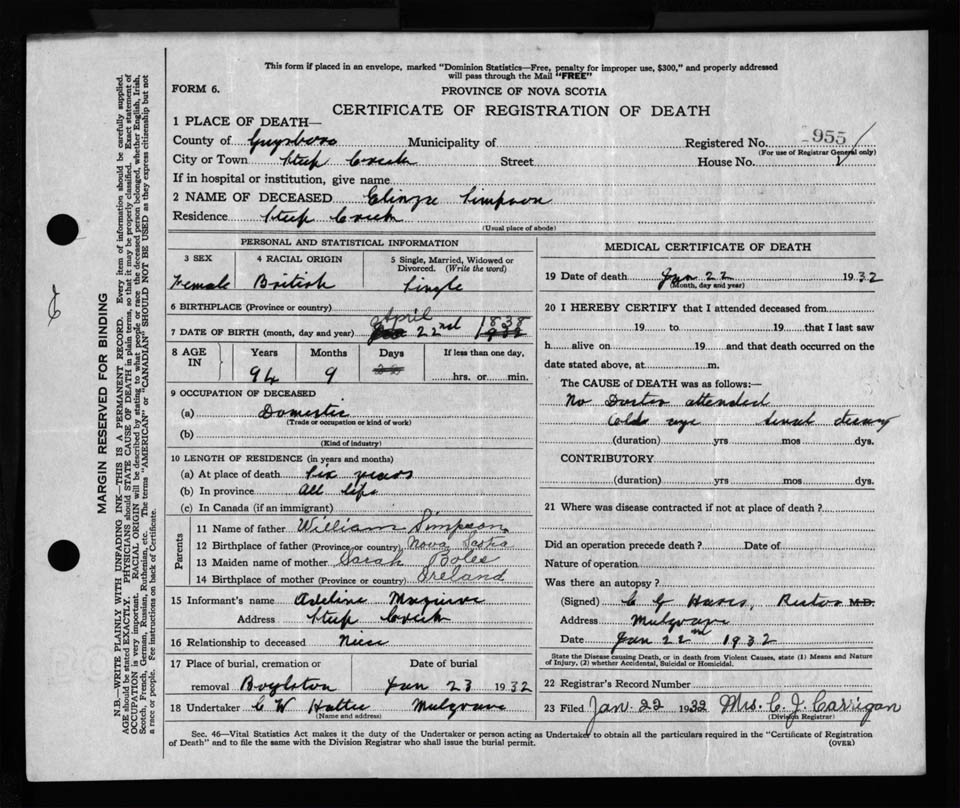 This form if placed in an envelope, marked "Dominion Statistics—Free, penalty for improper use, $300," and properly addressed
will pass through the Mail "FREE"
FORM 6. PROVINCE OF NOVA SCOTIA
CERTIFICATE OF REGISTRATION OF DEATH
1 PLACE OF DEATH—
County of Guysboro Municipality of Registered No. 955
(For use of Registrar General only)
City or Town Steep Creek Street House No.
If in hospital or institution, give name
2 NAME OF DECEASED Simpson
Residence Steep Creek
(Usual place of abode)
PERSONAL AND STATISTICAL INFORMATION
3 SEX 4 RACIAL ORIGIN 5 Single, Married, Widowed or Divorced. (Write the word)
Female British Single
6 BIRTHPLACE (Province or country)
April 1838
7 DATE OF BIRTH (month, day and year) Jan 22nd 1932
8 AGE IN Years Months Days If less than one day,
94 9 hrs. or min.
9 OCCUPATION OF DECEASED
(a) Domestic
(Trade or occupation or kind of work)
(b)
(Kind of industry)
10 LENGTH OF RESIDENCE (in years and months)
(a) At place of death Six years
(b) In province All life
(c) In Canada (if an immigrant)
Parents
11 Name of father William Simpson
12 Birthplace of father (Province or country) Nova Scotia
13 Maiden name of mother Sarah Boles
14 Birthplace of mother (Province or country) Ireland
15 Informant's name Adeline
Address Steep Creek
16 Relationship to deceased Niece
17 Place of burial, cremation or Date of burial
removal Boylston Jan 23 1932
18 Undertaker C W Hattie Mulgrave
(Name and address)
MEDICAL CERTIFICATE OF DEATH
19 Date of death Jan 22 1932
(Month, day and year)
20 I HEREBY CERTIFY that I attended deceased from
19 to 19 that I last saw
h alive on 19 and that death occurred on the
date stated above, at m.
The CAUSE of DEATH was as follows:—
No Doctor attended
Old age
(duration) yrs mos dys.
CONTRIBUTORY
(duration) yrs mos dys.
21 Where was disease contracted if not at place of death?
Did an operation precede death? Date of
Nature of operation
Was there an autopsy?
(Signed) C G Rector M.D.
Address Mulgrave
Date Jan 22nd 1932
State the Disease causing Death, or in death from Violent Causes, state (1) Means and Nature
of Injury, (2) whether Accidental, Suicidal or Homicidal.
22 Registrar's Record Number
23 Filed Jan. 22 1932 Mrs. C. J. Carrigan
(Division Registrar)
Sec. 46—Vital Statistics Act makes it the duty of the Undertaker or person acting as Undertaker to obtain all the particulars required in the "Certificate of Registration
of Death" and to file the same with the Division Registrar who shall issue the burial permit. (OVER)
MARGIN RESERVED FOR BINDING
N.B.—WRITE PLAINLY WITH UNFADING INK—THIS IS A PERMANENT RECORD. Every item of information should be carefully supplied.
AGE should be stated EXACTLY. PHYSICIANS should STATE CAUSE OF DEATH in plain terms, so that it may be properly classified. Exact statement of
OCCUPATION is very important. RACIAL ORIGIN will be described by stating to what people or race the deceased person belonged, whether English, Irish,
Scotch, French, German, Russian, Ruthenian, etc. The terms "AMERICAN" or "CANADIAN" SHOULD NOT BE USED as they express citizenship but not
a race or people. See instructions on back of Certificate.